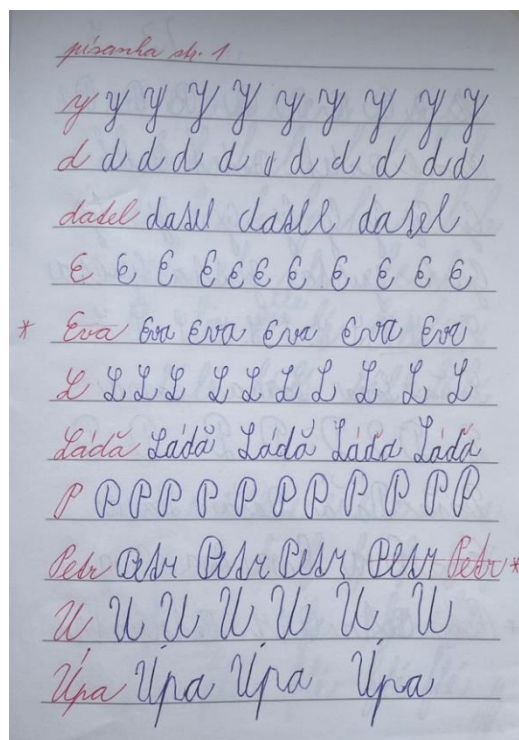 písanka str. 1
y y y y y y y y y y
d d d d d d d d d d d
datel datel datel datel
E E E E E E E E E E E
* Eva Eva Eva Eva Eva Eva
L L L L L L L L L L L
Láďa Láďa Láďa Láďa Láďa
P P P P P P P P P P P P
Petr Petr Petr Petr Petr Petr *
U U U U U U U
Úpa Úpa Úpa Úpa